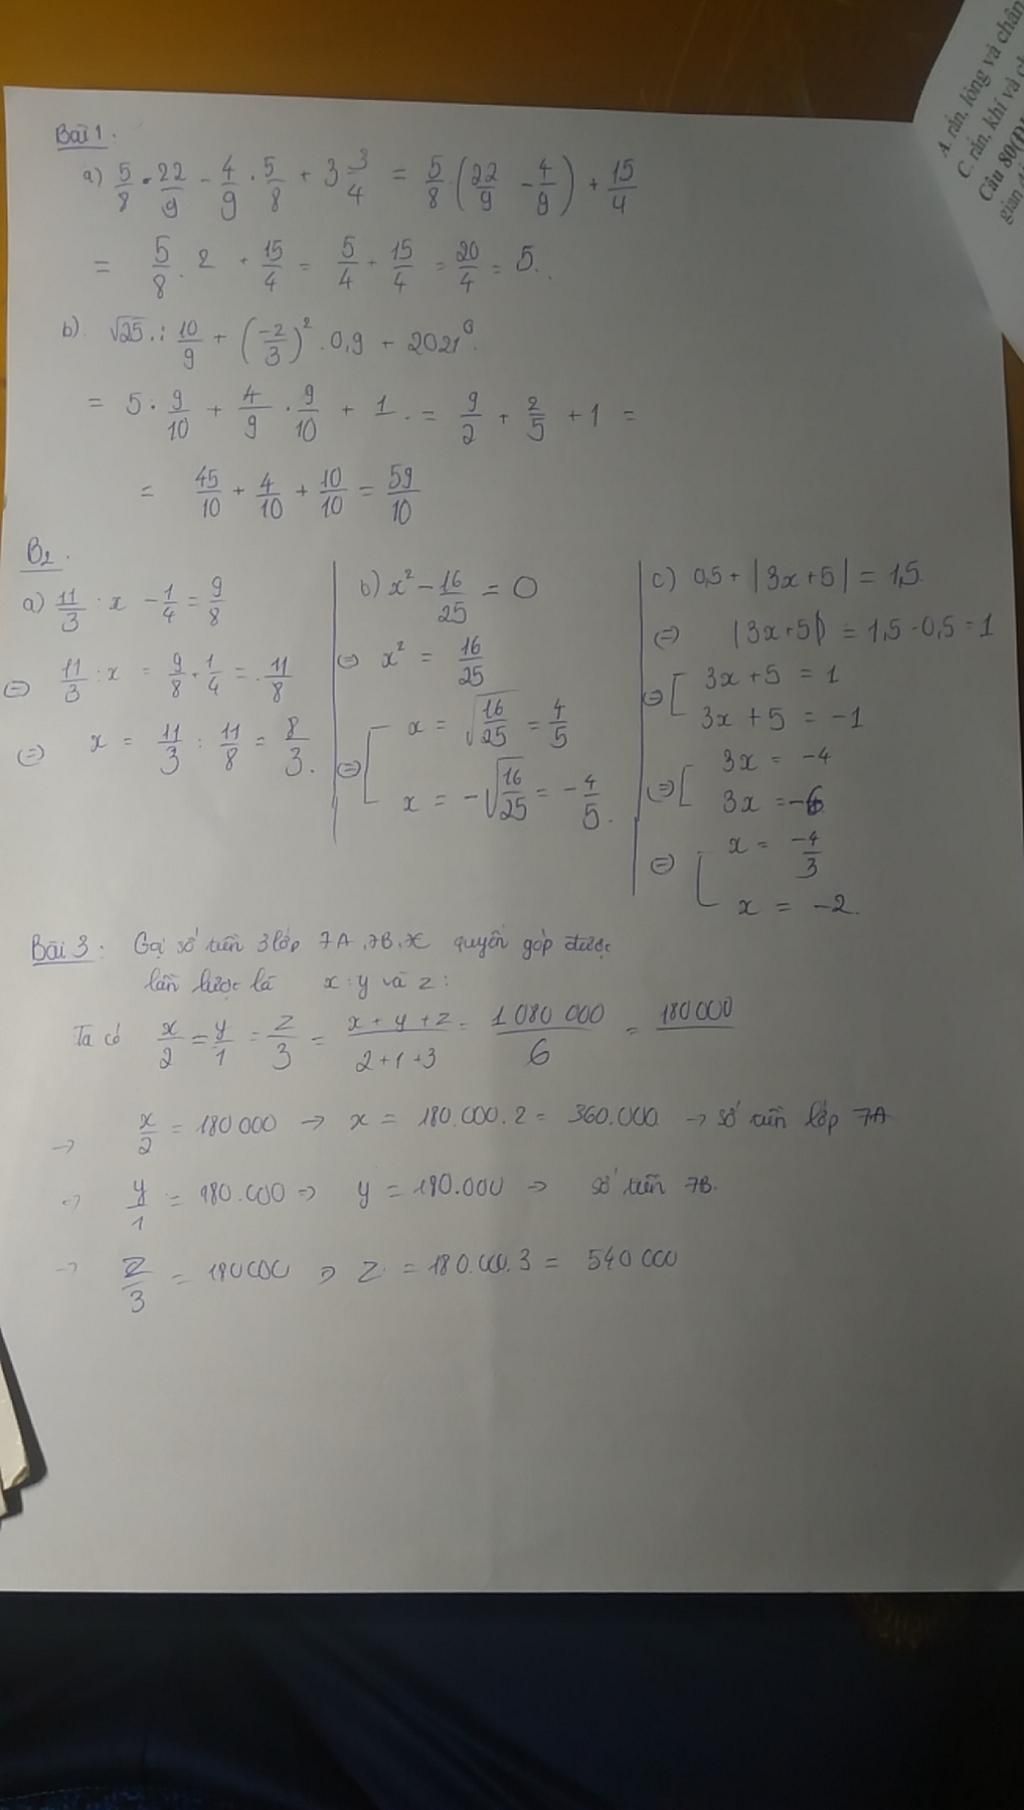 Bài 1.
a) 5/8 . 22/9 - 4/9 . 5/8 + 3 3/4 = 5/8 . (22/9 - 4/9) + 15/4
= 5/8 . 2 + 15/4 = 5/4 + 15/4 = 20/4 = 5.
b) √25 : 10/9 + (-2/3)² . 0,9 + 2021⁰.
= 5 . 9/10 + 4/9 . 9/10 + 1 . = 9/2 + 2/5 + 1 =
= 45/10 + 4/10 + 10/10 = 59/10
B2.
a) 11/3 : x - 1/4 = 9/8
(=) 11/3 : x = 9/8 + 1/4 = 11/8
(=) x = 11/3 : 11/8 = 8/3.
b) x² - 16/25 = 0
(=) x² = 16/25
(=) [ x = √16/25 = 4/5
x = -√16/25 = -4/5.
c) 0,5 + |3x+5| = 1,5.
(=) |3x+5| = 1,5 - 0,5 = 1
(=) [ 3x+5 = 1
3x+5 = -1
(=) [ 3x = -4
3x = -6
(=) [ x = -4/3
x = -2.
Bài 3: Gọi số tiền 3 lớp 7A, 7B, 7C quyên góp được
lần lượt là x : y và z :
Ta có x/2 = y/1 = z/3 = x+y+z/2+1+3 = 1 080 000/6 = 180 000
-> x/2 = 180 000 -> x = 180.000.2 = 360.000 -> số tiền lớp 7A
=> y/1 = 180.000 => y = 180.000 => số tiền 7B.
-> z/3 = 180000 => z = 180.000.3 = 540 000
A. rắn, lỏng và chân
C. rắn, khí và ch
Câu 80(Đ)
gian